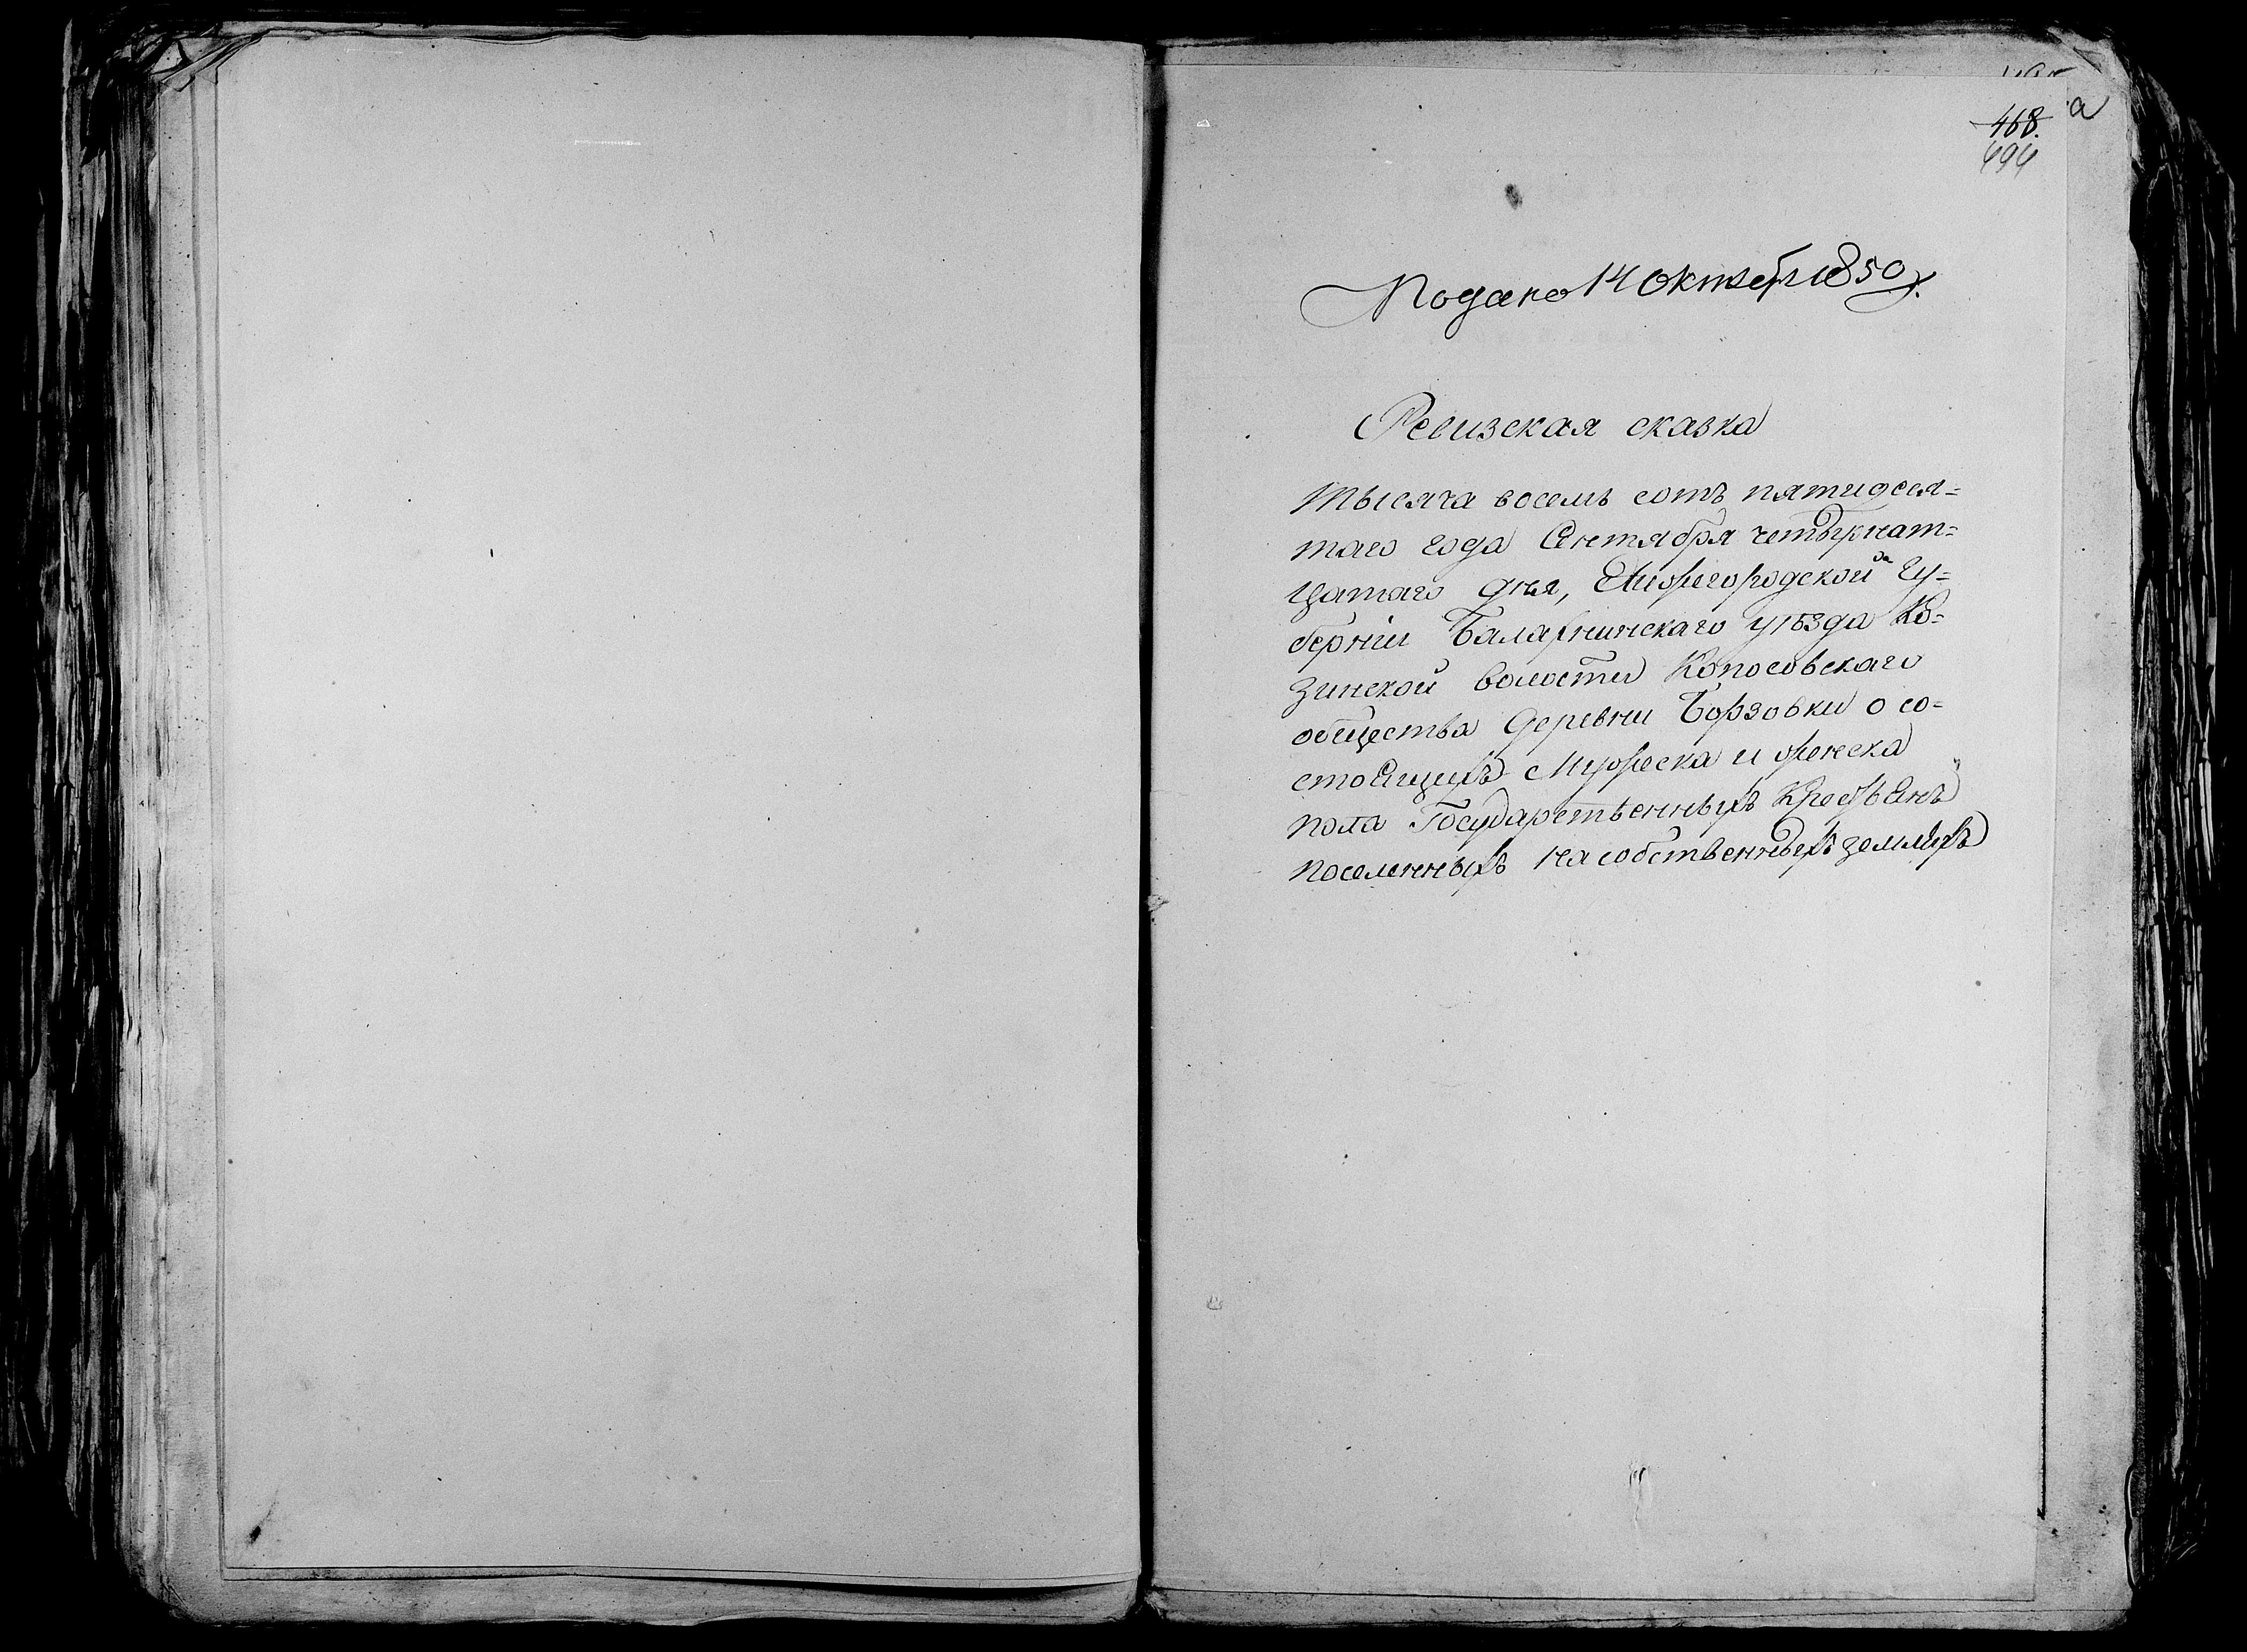 468.
696
Подано 14 октябр 1850 г.
Ревизская сказка
тысяча восемь сотъ пятидеся=
таго года Сентября четырнат=
цатаго дня, Нижегородской Гу=
берніи Балахнинскаго уѣзда Ко=
зинской волости Копосовскаго
общества деревни Борзовки о со=
стоящихъ мужеска и женска
пола Государственныхъ Крестьянъ
поселенныхъ на собственныхъ земляхъ